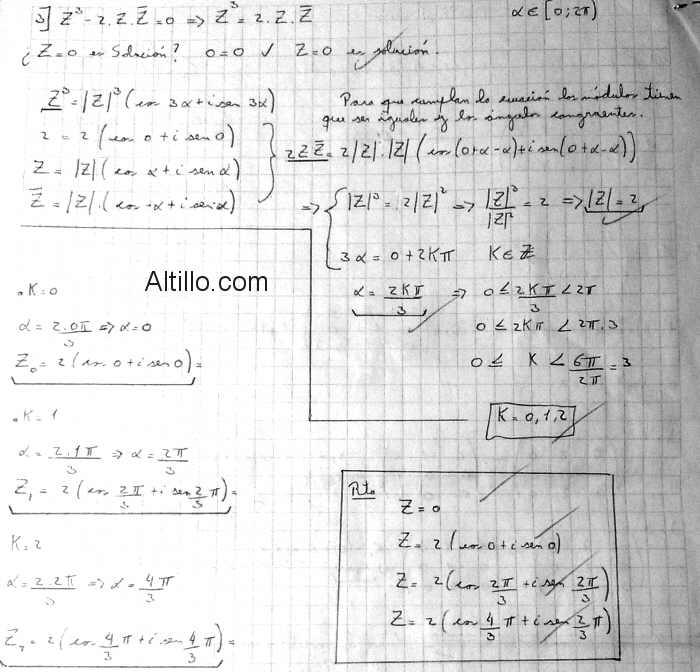 3] Z³ - 2.Z.Z̅ = 0 => Z³ = 2.Z.Z̅   α ∈ [0; 2π)
¿Z=0 es Solución? 0=0 ✓ Z=0 es solución.
Z³ = |Z|³ (cos 3α + i sen 3α)
2 = 2 (cos 0 + i sen 0)
Z = |Z| (cos α + i sen α)
Z̅ = |Z|.(cos -α + i sen -α)
Para que cumplan la ecuación los módulos tienen
que ser iguales y los ángulos congruentes.
2ZZ̅ = 2|Z|.|Z| (cos(0+α-α) + i sen(0+α-α))
=> { |Z|³ = 2|Z|² => |Z|³/|Z|² = 2 => |Z| = 2
3α = 0 + 2Kπ   K ∈ ℤ
α = 2Kπ/3 => 0 ≤ 2Kπ/3 < 2π
0 ≤ 2Kπ < 2π.3
0 ≤ K < 6π/2π = 3
K = 0, 1, 2
Altillo.com
. K=0
α = 2.0π/3 => α=0
Z₀ = 2 (cos 0 + i sen 0) =
. K=1
α = 2.1π/3 => α = 2π/3
Z₁ = 2 (cos 2π/3 + i sen 2/3 π) =
K=2
α = 2.2π/3 => α = 4/3 π
Z₂ = 2 (cos 4/3 π + i sen 4/3 π) =
Rta
Z = 0
Z = 2 (cos 0 + i sen 0)
Z = 2 (cos 2π/3 + i sen 2π/3)
Z = 2 (cos 4/3 π + i sen 2/3 π)